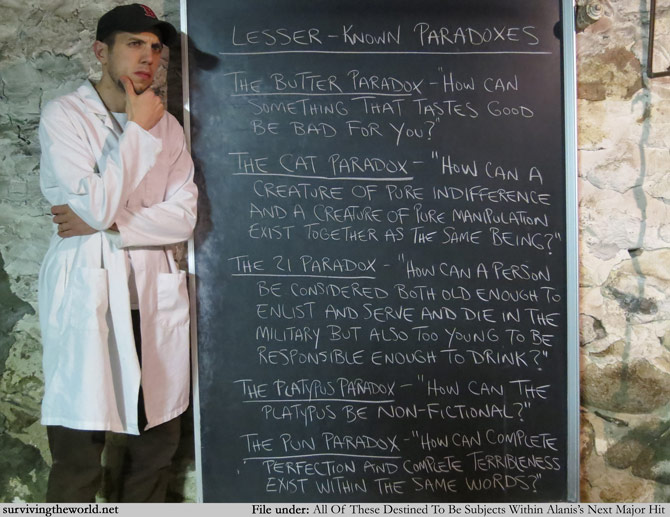 LESSER-KNOWN PARADOXES
THE BUTTER PARADOX - "HOW CAN
SOMETHING THAT TASTES GOOD
BE BAD FOR YOU?"
THE CAT PARADOX - "HOW CAN A
CREATURE OF PURE INDIFFERENCE
AND A CREATURE OF PURE MANIPULATION
EXIST TOGETHER AS THE SAME BEING?"
THE 21 PARADOX - "HOW CAN A PERSON
BE CONSIDERED BOTH OLD ENOUGH TO
ENLIST AND SERVE AND DIE IN THE
MILITARY BUT ALSO TOO YOUNG TO BE
RESPONSIBLE ENOUGH TO DRINK?"
THE PLATYPUS PARADOX - "HOW CAN THE
PLATYPUS BE NON-FICTIONAL?"
THE PUN PARADOX - "HOW CAN COMPLETE
PERFECTION AND COMPLETE TERRIBLENESS
EXIST WITHIN THE SAME WORDS?"
survivingtheworld.net File under: All Of These Destined To Be Subjects Within Alanis's Next Major Hit